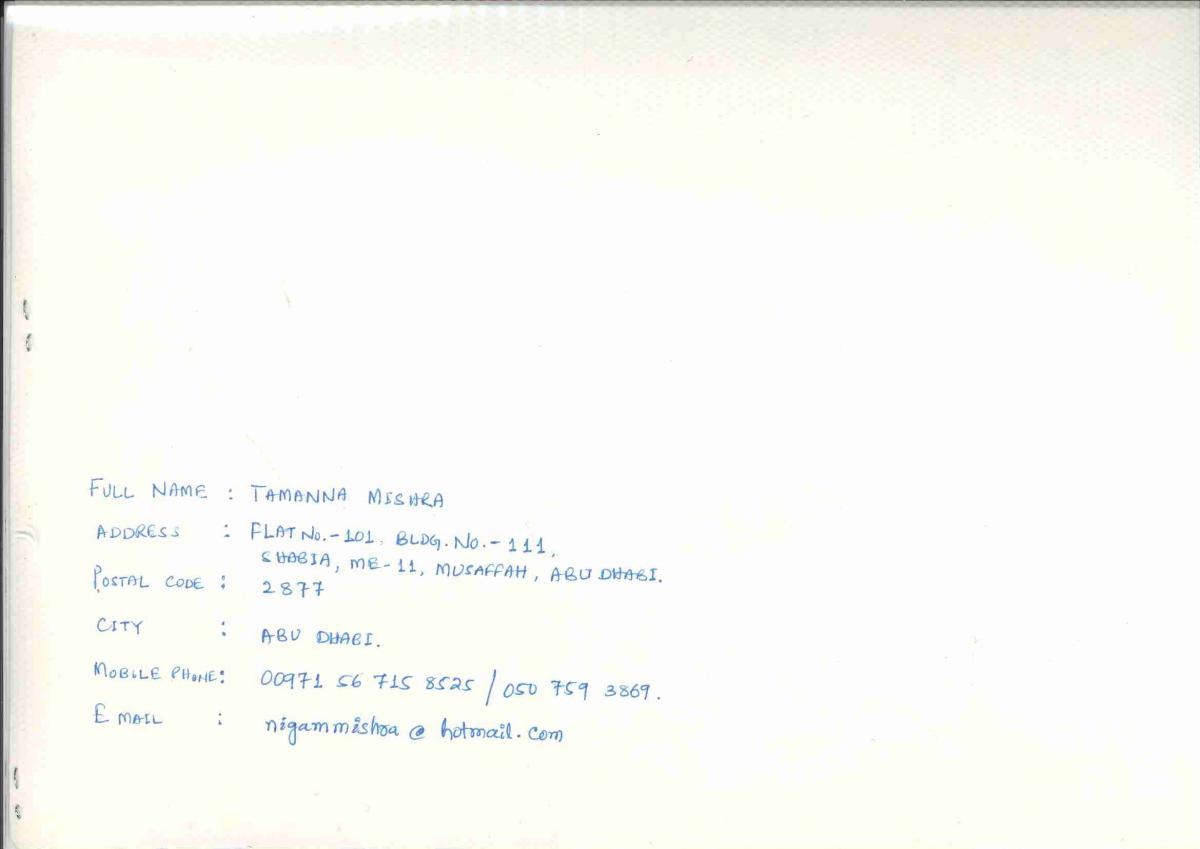 FULL NAME : TAMANNA MISHRA
ADDRESS : FLAT No.-101, BLDG. No.-111,
SHABIA, ME-11, MUSAFFAH, ABU DHABI.
POSTAL CODE : 2877
CITY : ABU DHABI.
MOBILE PHONE: 00971 56 715 8525 / 050 759 3869.
EMAIL : nigammishra@hotmail.com